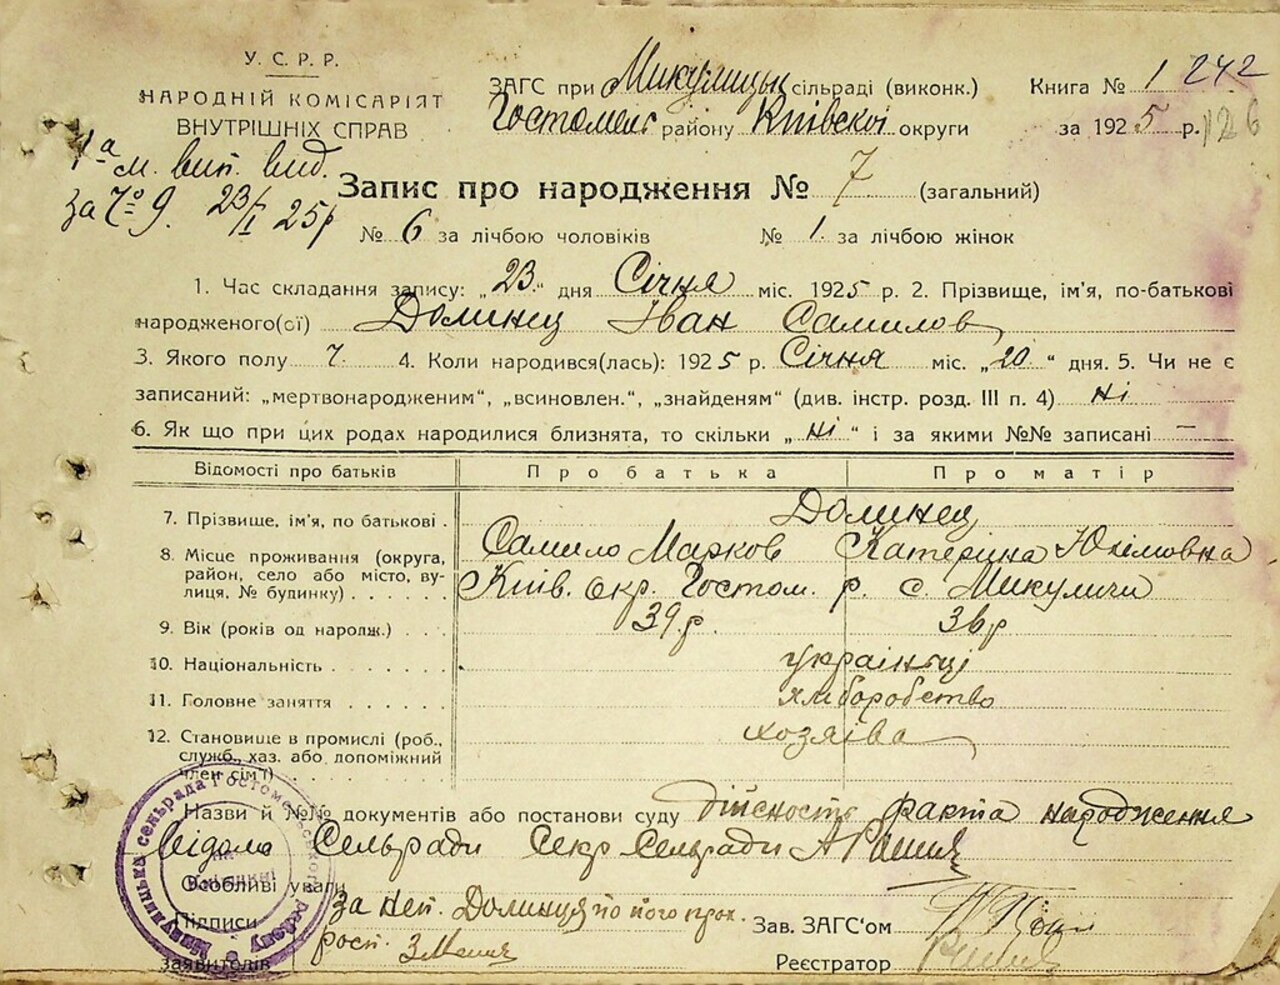 У. С. Р. Р.
НАРОДНІЙ КОМІСАРІЯТ
ВНУТРІШНІХ СПРАВ
ЗАГС при Микулицьк сільраді (виконк.)
Книга № 1 242
Гостомельс району Київскої округи
за 1925 р. 126
м. вип. вид.
за № 9. 23/I 25р
Запис про народження № 7 (загальний)
№ 6 за лічбою чоловіків № 1. за лічбою жінок
1. Час складання запису: „23" дня Січня міс. 1925 р. 2. Прізвище, ім'я, по-батькові
народженого(ої) Долинец Іван Самилов
3. Якого полу Ч. 4. Коли народився(лась): 1925 р. Січня міс. „20" дня. 5. Чи не є
записаний: „мертвонародженим", „всиновлен.", „знайденям" (див. інстр. розд. III п. 4) ні
6. Як що при цих родах народилися близнята, то скільки „ні" і за якими №№ записані —
Відомості про батьків Про батька Про матір
7. Прізвище, ім'я, по батькові . Долинец
Самило Марков Катеріна Юхімовна
8. Місце проживання (округа,
район, село або місто, ву-
лиця, № будинку) . . . . . . Київ. окр. Гостом. р. с. Микуличи
9. Вік (років од народж.) . . . 39 р. 36 р
10. Національність . . . . . . українці
11. Головне заняття . . . . . . хліборобство
12. Становище в промислі (роб.,
служб., хаз. або допоміжний
член сім'ї) . . . . . . хозяїва
Назви й №№ документів або постанови суду Дійсность факта народження
Відома Сельради Секр Сельради
Особливі уваги
Підписи
заявителів
За неп. Долинця по його прох.
рост.
Зав. ЗАГС'ом
Реєстратор